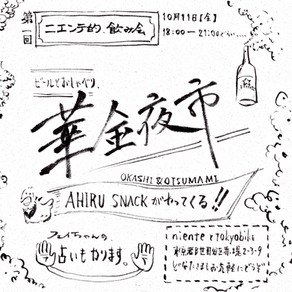 第一回
ニエンテ的、飲み会
10月11日【金】
18:00 — 21:00
ビールとおしゃべり、
華金夜市
OKASHI & OTSUMAMI
AHIRU SNACK がやってくる!!
フェイちゃんの、
占いもやります。
niente e tokyobike
東京都世田谷区
2-3-9
お気軽にどうぞ